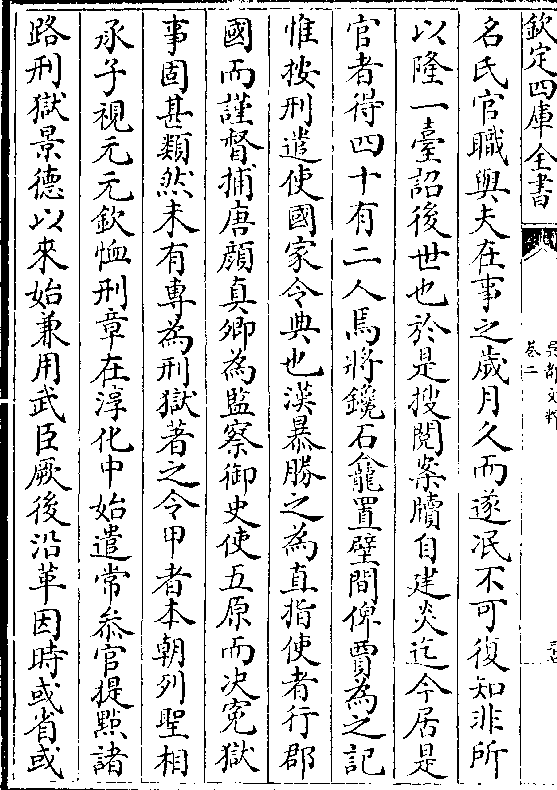 欽定四庫全書
吳都文粹
卷二
名氏官職與夫在事之歲月久而遂泯不可復知非所
以隆一臺詔後世也於是搜閱案牘自建炎迄今居是
官者得四十有二人焉將鑱石龕置壁間俾賈為之記
惟按刑遣使國家令典也漢暴勝之為直指使者行郡
國而謹督捕唐顔真卿為監察御史使五原而決寃獄
事固甚類然未有專為刑獄著之令甲者本朝列聖相
承子視元元欽恤刑章在淳化中始遣常叅官提點諸
路刑獄景德以來始兼用武臣厥後沿革因時或省或